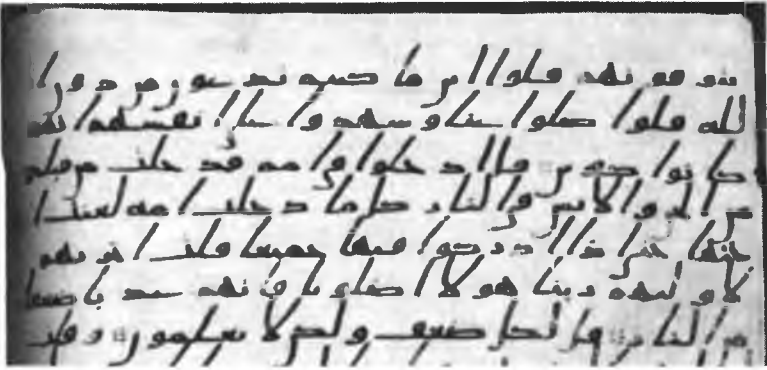 يتوفونهم قلوا اين ما كنتم تدعون من دون ا
لله قلوا ضلوا عنا وشهدوا على انفسهم انهم
كانوا كفرين قال ادخلوا في امم قد خلت من قبلكم
من الجن والانس في النار كلما دخلت امه لعنت ا
ختها حتى اذا اداركوا فيها جميعا قلت اخريهم
لاوليهم ربنا هولا اضلونا فاتهم عذبا ضعفا
من النار قال لكل ضعف ولكن لا تعلمون وقلت